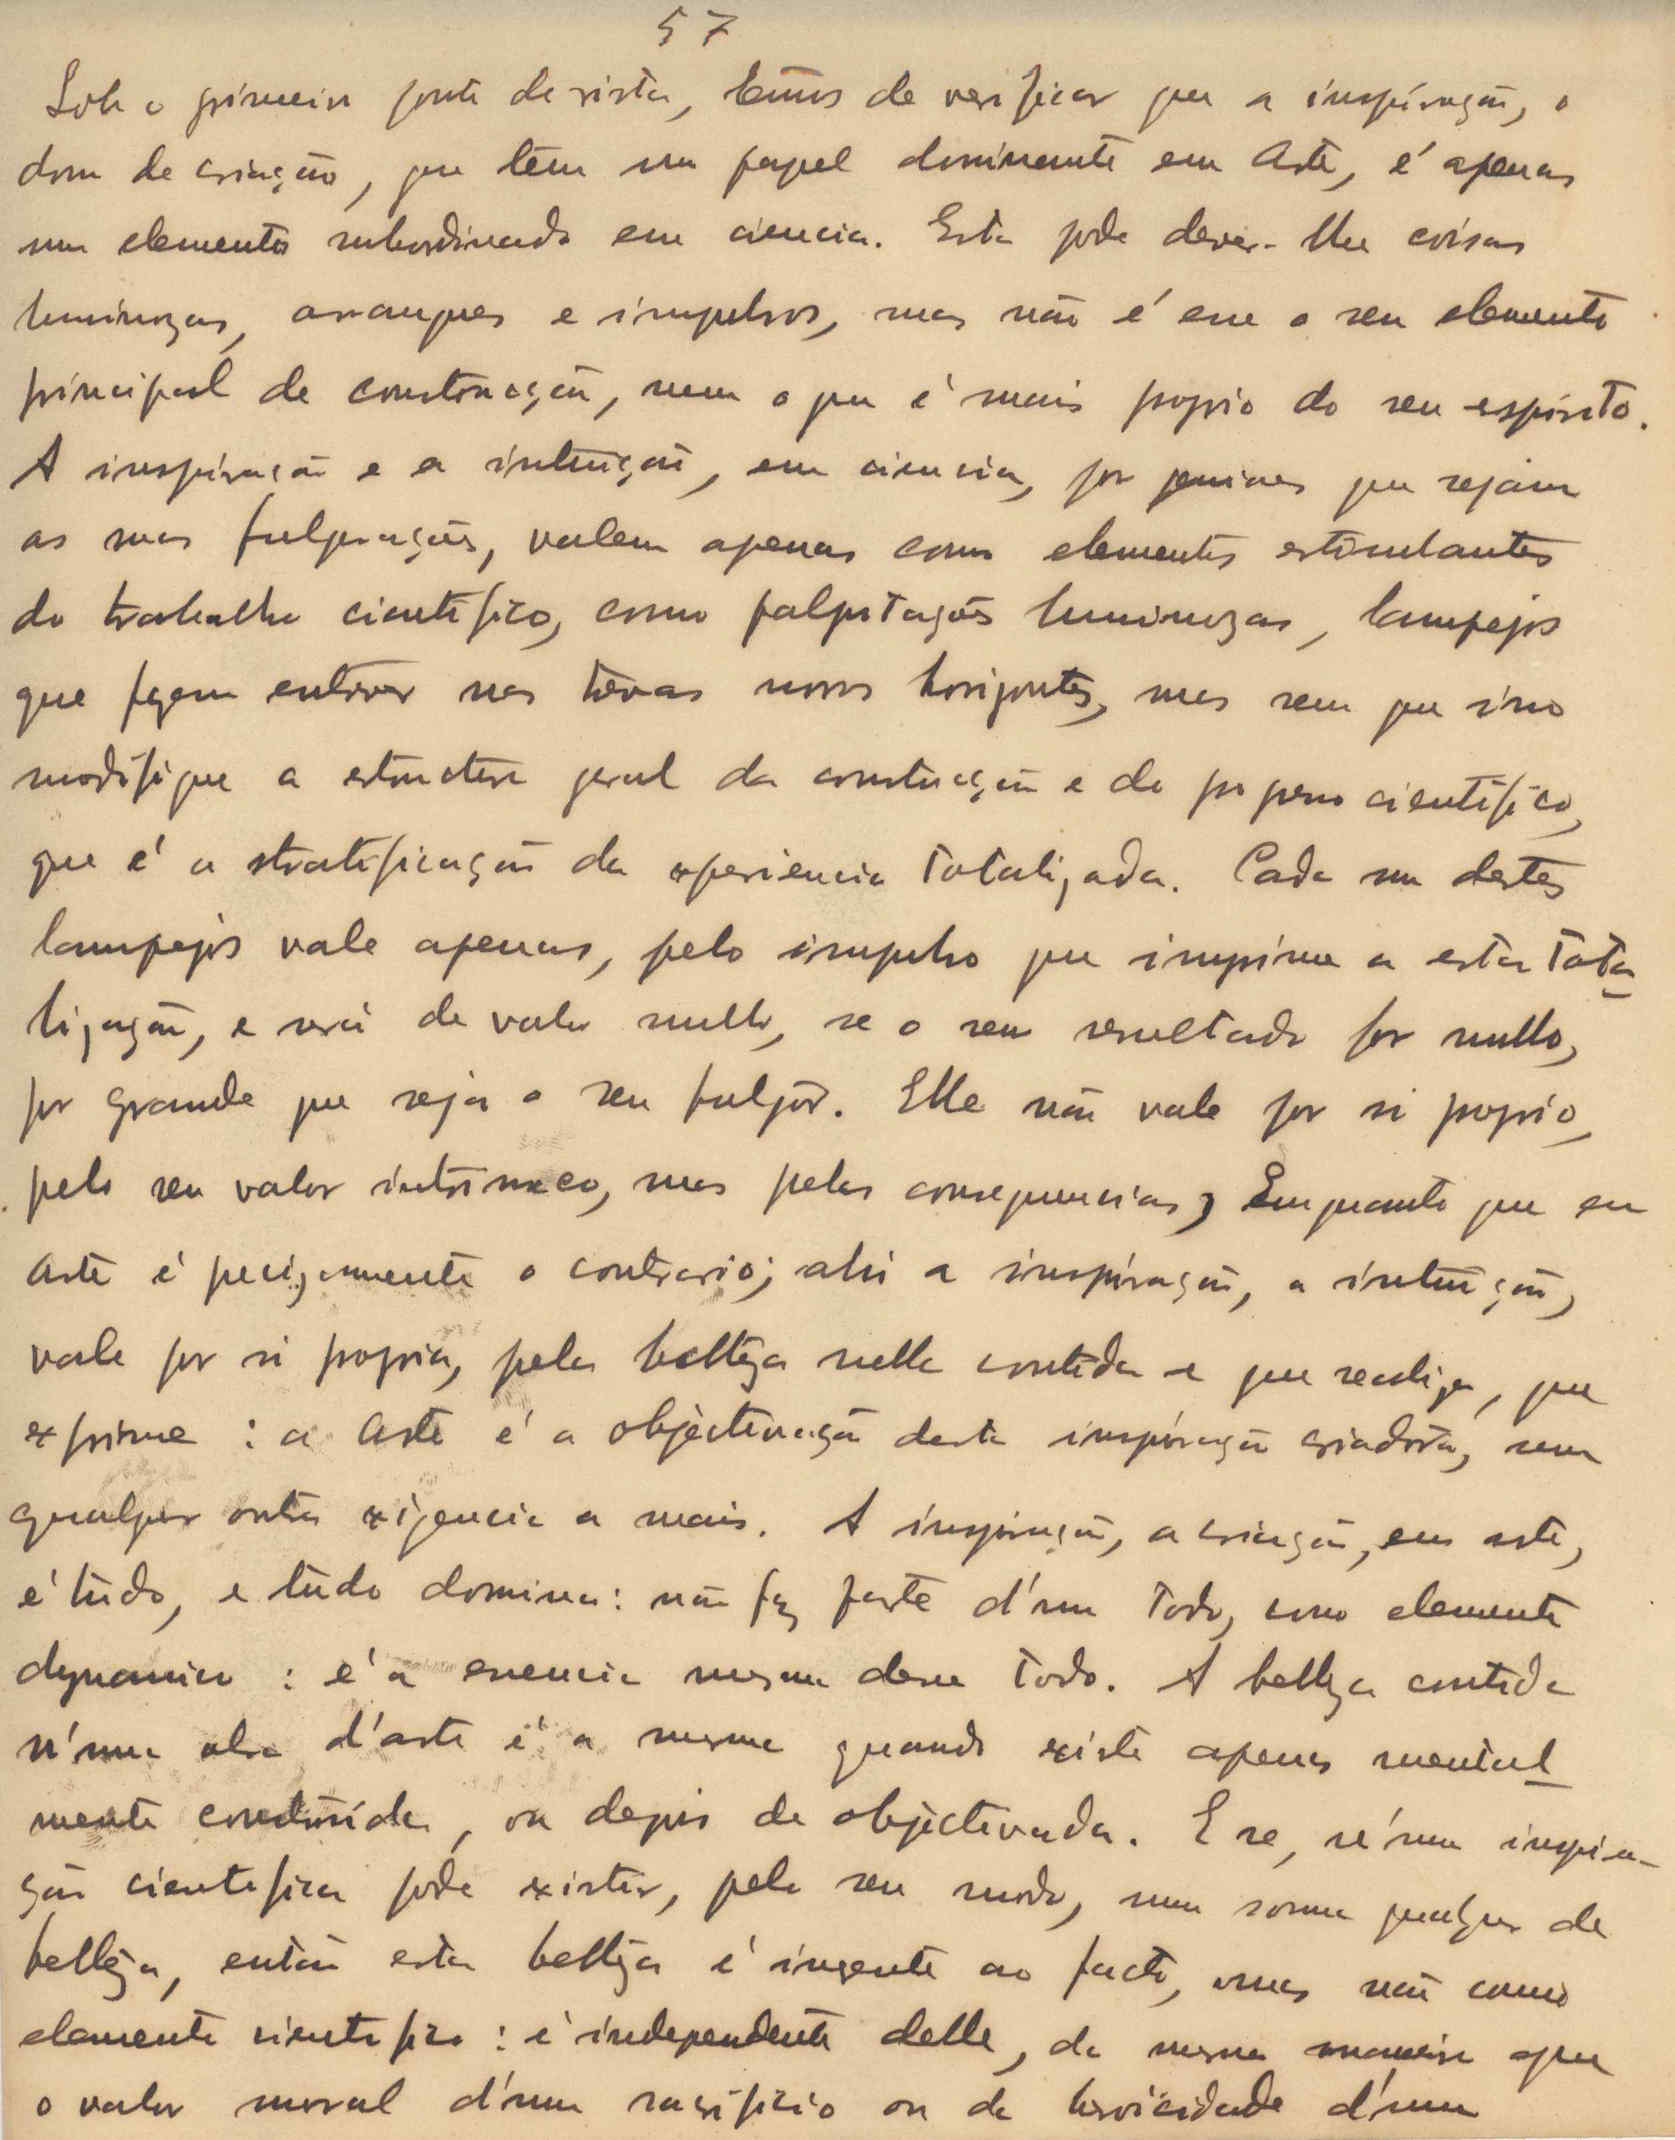 57
Sob o primeiro ponto de vista, temos de verificar que a inspiração, o
dom de criação, que tem um papel dominante em Arte, é apenas
um elemento subordinado em ciencia. Esta pode dever-lhe coisas
luminozas, arranques e impulsos, mas não é esse o seu elemento
principal de construcção, nem o que é mais proprio do seu espirito.
A inspiração e a intuição, em ciencia, por geniaes que sejam
as suas fulgurações, valem apenas como elementos estimulantes
do trabalho cientifico, como palpitações luminozas, lampejos
que fazem entrever nas trevas novos horizontes, mas sem que isso
modifique a estructura geral da construcção e do progresso cientifico,
que é a stratificação da experiencia totalizada. Cada um destes
lampejos vale apenas, pelo impulso que imprime a esta tota-
lização, e será de valor nullo, se o seu resultado for nullo,
por grande que seja o seu fulgor. Elle não vale por si proprio,
pelo seu valor intrinseco, mas pelas consequencias; Emquanto que em
Arte é precizamente o contrario; ahi a inspiração, a intuição,
vale por si propria, pela belleza nella contida e que realiza, que
exprime : a Arte é a objectivação desta inspiração criadora, sem
qualquer outra exigencia a mais. A inspiração, a criação, em arte,
é tudo, e tudo domina: não faz parte d'um todo, como elemento
dynamico : é a essencia mesma desse todo. A belleza contida
n'uma obra d'arte é a mesma quando existe apenas mental-
mente construida, ou depois de objectivada. E se, n'uma inspira-
ção cientifica pode existir, pelo seu modo, uma soma qualquer de
belleza, então esta belleza é ingente ao facto, mas não como
elemento cientifico : é independente delle, da mesma maneira que
o valor moral d'um sacrificio ou da heroicidade d'um